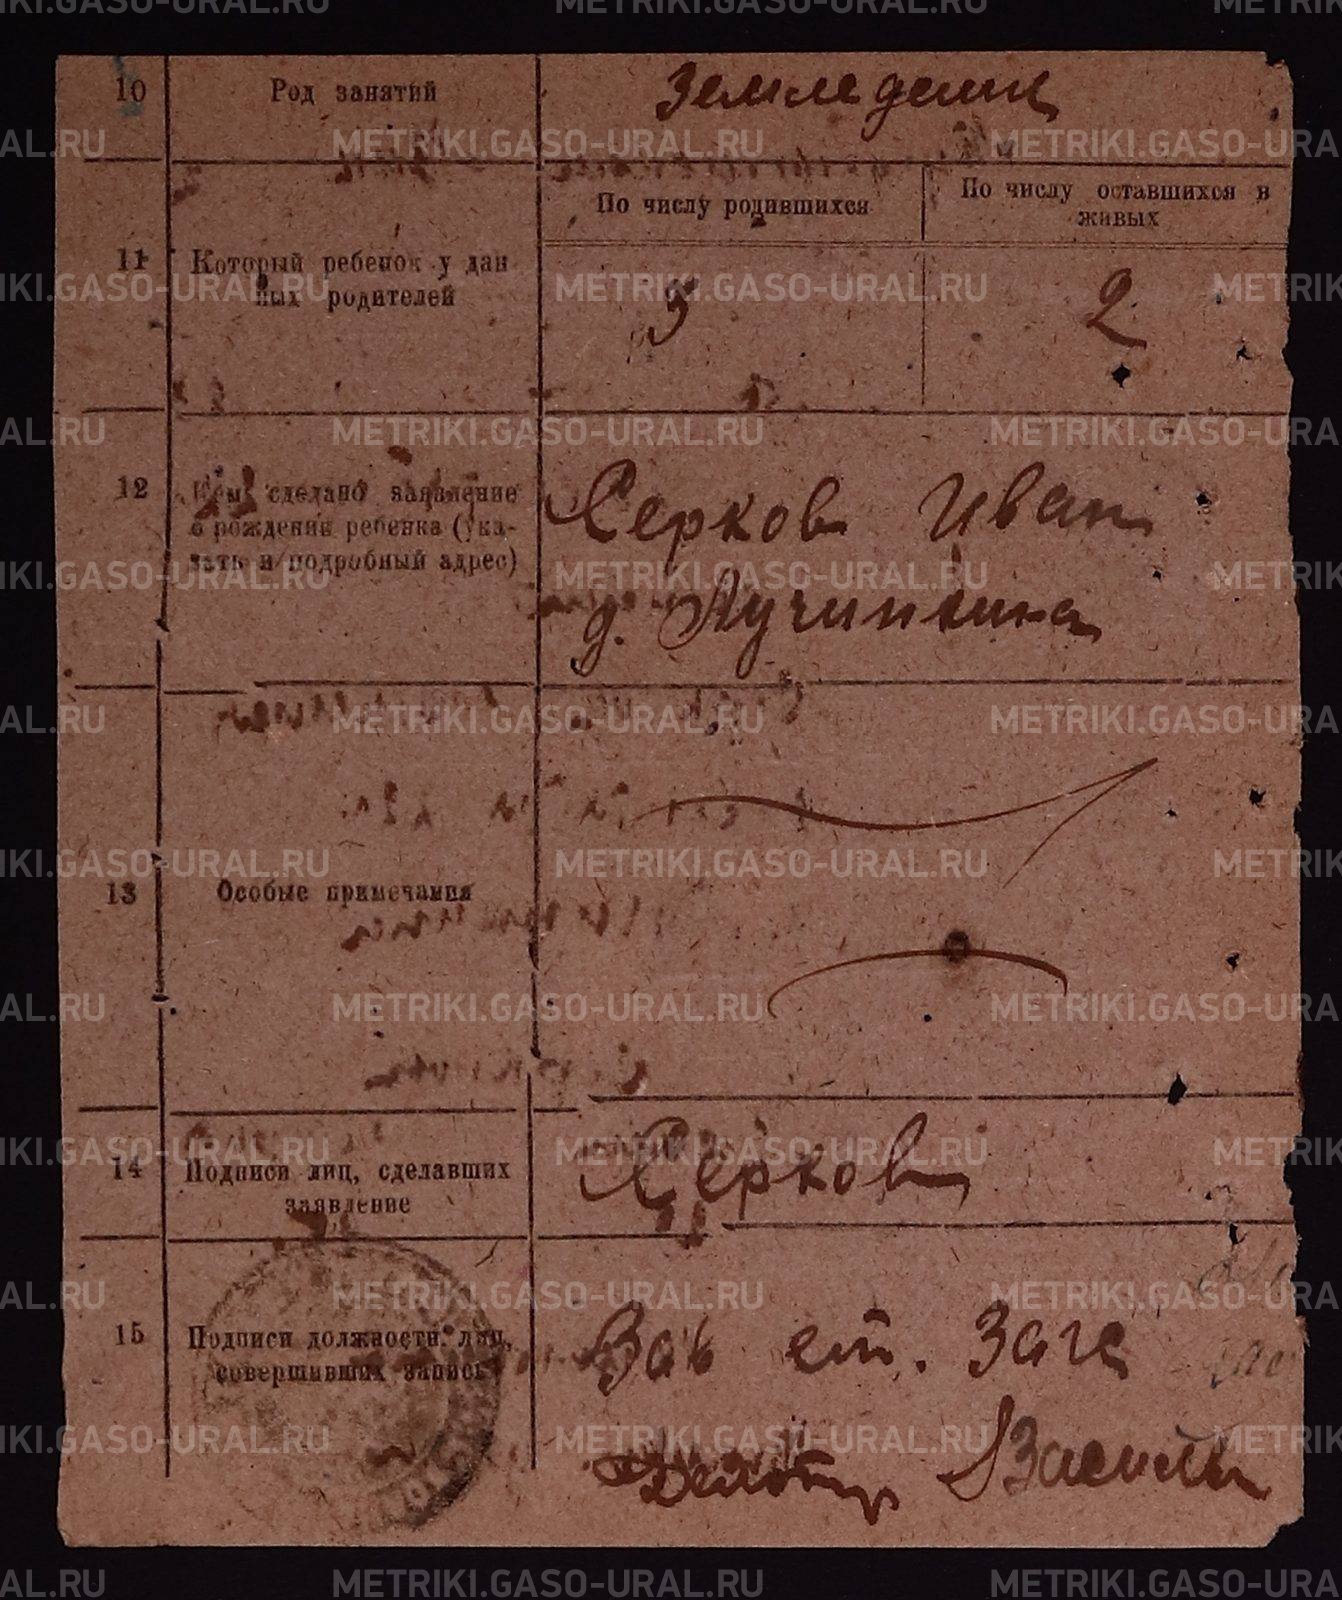 10 Род занятий Земледелие
По числу родившихся По числу оставшихся в
живых
11 Который ребенок у дан
ных родителей
5 2
12 Кем сделано заявление
о рождении ребенка (ука-
зать и подробный адрес)
Серков Иван
д. Лучинкина
13 Особые примечания
14 Подписи лиц, сделавших
заявление
Серков
15 Подписи должностн. лиц,
совершивших запись
Зав ст. Загс
Делопр
METRIKI.GASO-URAL.RU